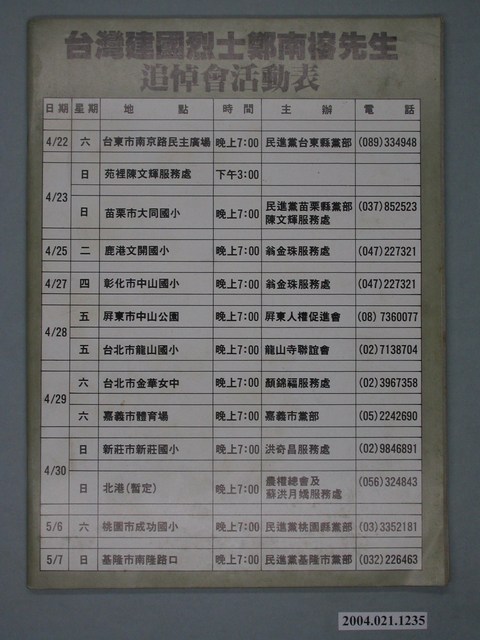 台灣建國烈士鄭南榕先生
追悼會活動表
日期 星期 地點 時間 主辦 電話
4/22 六 台東市南京路民主廣場 晚上7:00 民進黨台東縣黨部 (089)334948
4/23 日 苑裡陳文輝服務處 下午3:00
日 苗栗市大同國小 晚上7:00 民進黨苗栗縣黨部 (037)852523
陳文輝服務處
4/25 二 鹿港文開國小 晚上7:00 翁金珠服務處 (047)227321
4/27 四 彰化市中山國小 晚上7:00 翁金珠服務處 (047)227321
4/28 五 屏東市中山公園 晚上7:00 屏東人權促進會 (08)7360077
五 台北市龍山國小 晚上7:00 龍山寺聯誼會 (02)7138704
4/29 六 台北市金華女中 晚上7:00 顏錦福服務處 (02)3967358
六 嘉義市體育場 晚上7:00 嘉義市黨部 (05)2242690
4/30 日 新莊市新莊國小 晚上7:00 洪奇昌服務處 (02)9846891
日 北港(暫定) 晚上7:00 農權總會及 (056)324843
蘇洪月嬌服務處
5/6 六 桃園市成功國小 晚上7:00 民進黨桃園縣黨部 (03)3352181
5/7 日 基隆市南隆路口 晚上7:00 民進黨基隆市黨部 (032)226463
2004.021.1235